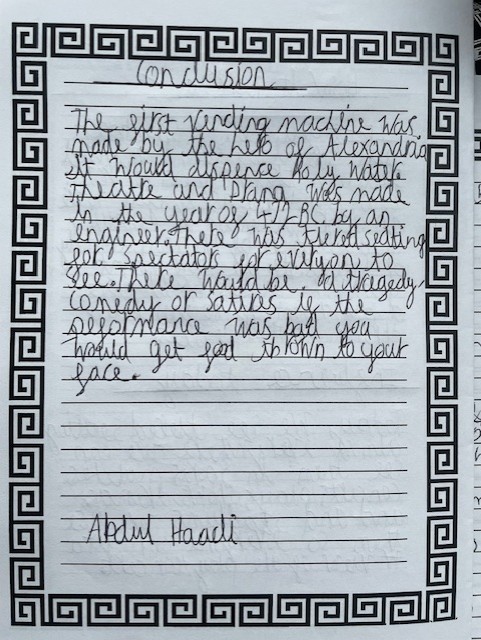 Conclusion
The first vending machine was
made by the hero of Alexandria
it would dispence Holy Water.
Theatre and Drama was made
in the year of 472 BC by an
engineer. There was tiered seating
for spectators for everyon to
see. There would be. a tragedy,
comedy or satires if the
peformance was bad you
would get food thrown to your
face.
Abdul Haadi